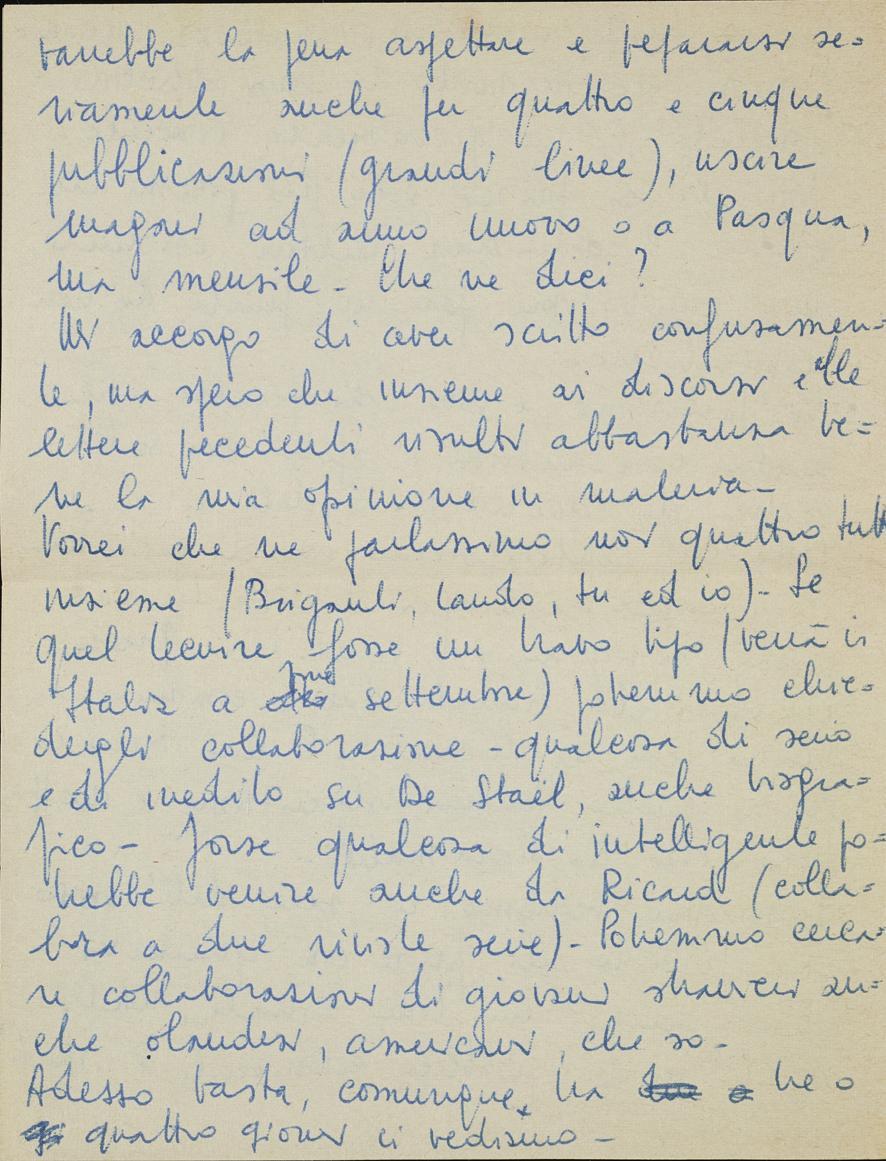 varrebbe la pena aspettare e prepararsi se=
riamente anche per quattro e cinque
pubblicazioni (grandi linee), uscire
magari ad anno nuovo o a Pasqua,
ma mensile - Che ne dici?
Mi accorgo di aver scritto confusamen=
te, ma spero che insieme ai discorsi e alle
lettere precedenti risulti abbastanza be=
ne la mia opinione in materia -
Vorrei che ne parlassimo noi quattro tutti
insieme (Briganti, Lando, tu ed io) - Se
quel Lecuire fosse un bravo tipo (verrà in
Italia a fine settembre) potremmo chie=
dergli collaborazione - qualcosa di serio
e di inedito su De Staël, anche biogra=
fico - Forse qualcosa di intelligente po=
trebbe venire anche da Ricard (colla=
bora a due riviste serie) - Potremmo cerca=
re collaborazioni di giovani stranieri an=
che olandesi, americani, che so -
Adesso basta, comunque, tra tre o
quattro giorni ci vediamo -